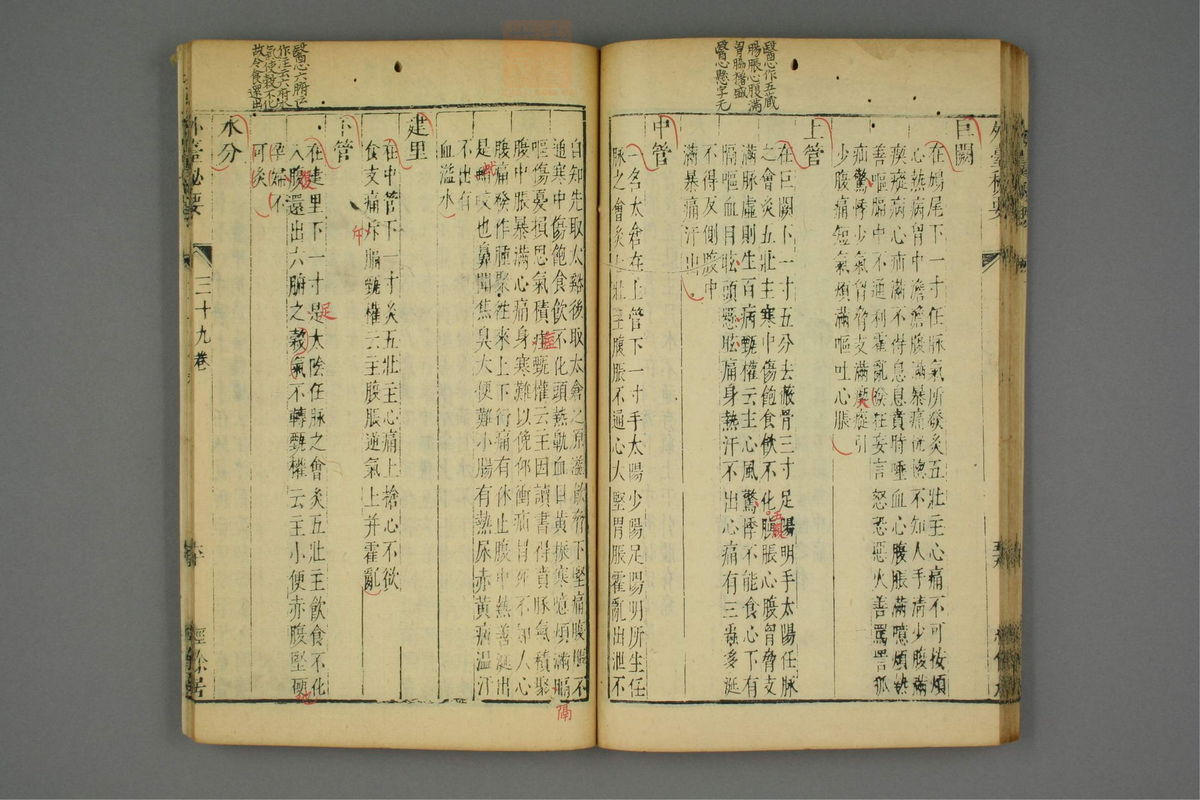 醫心作五藏
腸脹心腹滿
胷脇榰滿
醫心懸字无
外臺秘要
巨闕
在鳩尾下一寸任脉氣所發灸五壯主心痛不可按煩
心熱病胃中澹澹腹滿暴痛恍惚不知人手清少腹滿
瘈瘲病心疝滿不得息息賁時唾血心腹脹滿噫煩熱
善嘔膈中不通利霍亂發狂妄言怒恐惡火善罵詈狐
疝驚悸少氣胷脅支滿瘈瘲引
少腹痛短氣煩滿嘔吐心脹
上管
在巨闕下一寸五分去蔽骨三寸足陽明手太陽任脉
之會灸五壯主寒中傷飽食飲不化䐜脹心腹胷脅支
滿脉虛則生百病甄權云主心風驚悸不能食心下有
隔嘔血目眩頭懸眩痛身熱汗不出心痛有三蟲多涎
不得反側腹中
滿暴痛汗出
中管
一名太倉在上管下一寸手太陽少陽足陽明所生任
脉之會灸七壯主腹脹不通心大堅胃脹霍亂出泄不
醫心六腑之
作主云六府
氣使穀不化
故令食還出
自知先取太谿後取太倉之原溢飲脅下堅痛腹脹不
通寒中傷飽食飲不化頭熱鼽血目黃振寒噫煩滿膈
嘔傷憂損思氣積甄權云主因讀書得賁豚氣積聚
腹中脹暴滿心痛身寒難以俛仰衝疝冒死不知人心
腹痛發作腫聚往來上下行痛有休止腹中熱善涎出
是蚘咬也鼻聞焦臭大便難小腸有熱尿赤黃病溫汗
不出有
血溢水
建里
在中管下一寸灸五壯主心痛上搶心不欲
食支痛斥膈甄權云主腹脹逆氣上并霍亂
下管
在建里下一寸足太陰任脉之會灸五壯主飲食不化
入腹還出六腑之穀氣不轉甄權云主小便赤腹堅硬
孕婦不
可灸
水分
外臺祕要
三十九卷
經餘居